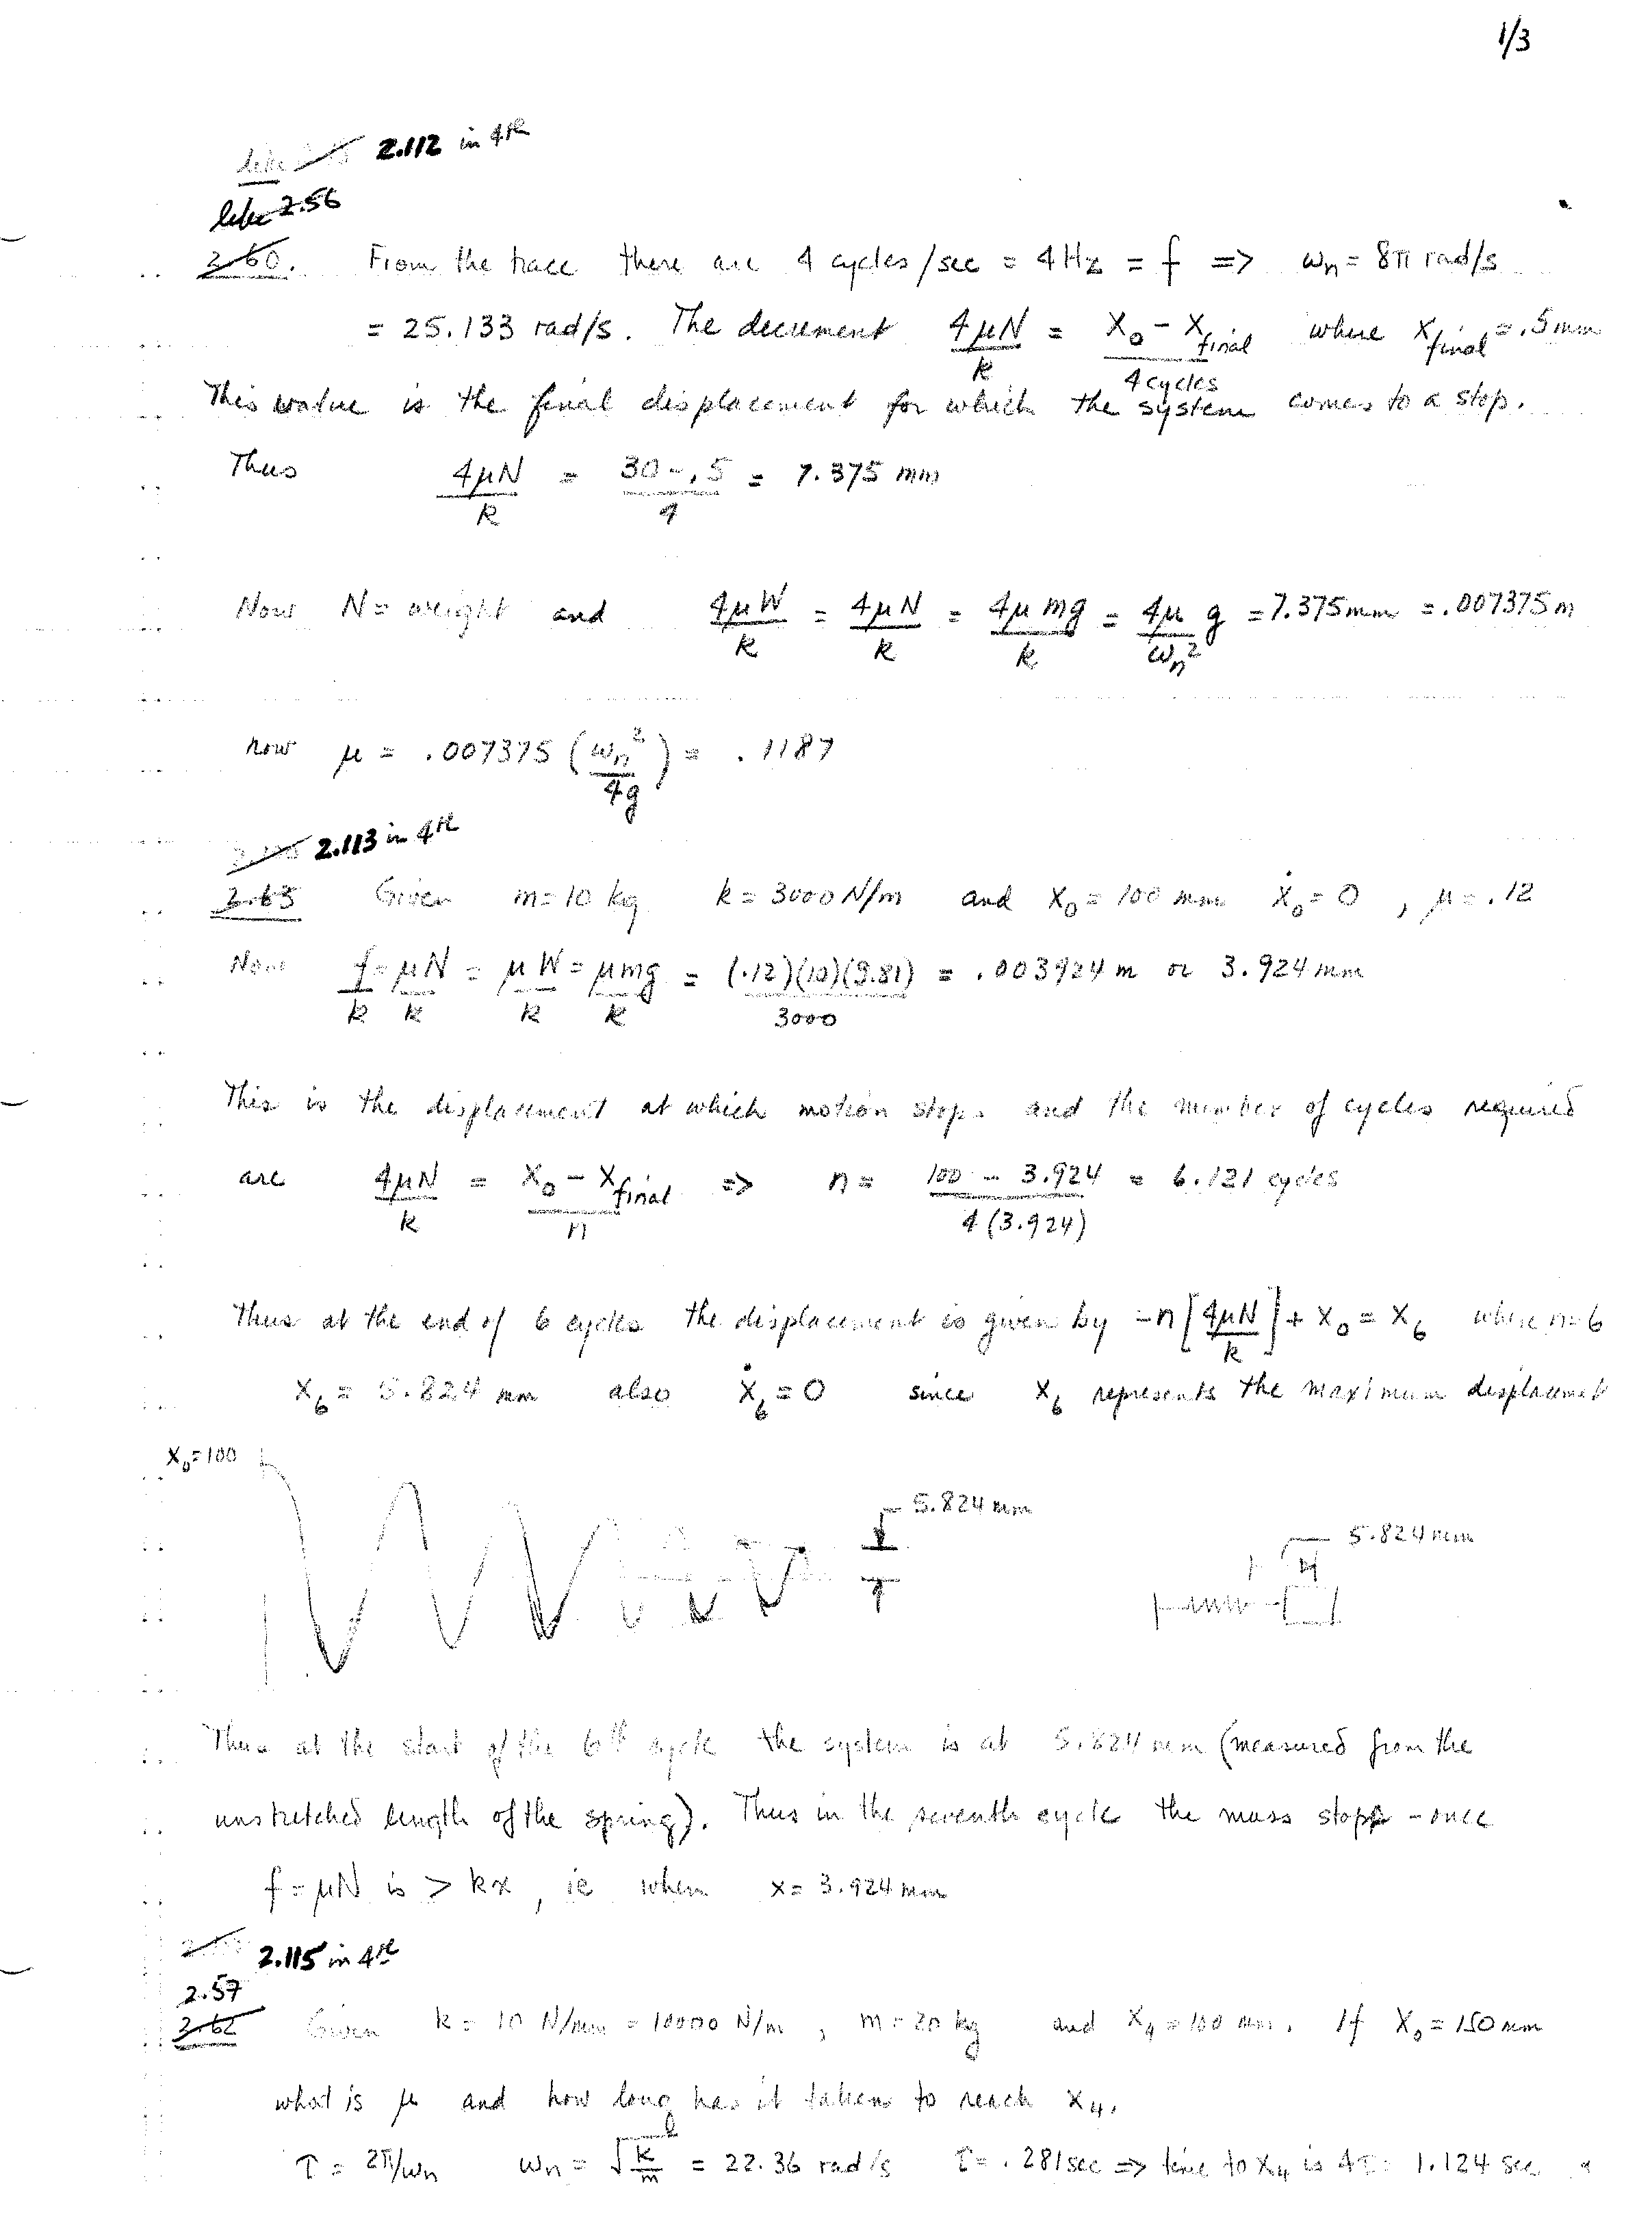 1/3
like 2.112 in 4th
like 2.56
2.60. From the trace there are 4 cycles/sec = 4Hz = f => ωn = 8π rad/s
= 25.133 rad/s. The decrement 4μN/k = (X0 - Xfinal)/4cycles where Xfinal = .5mm
This value is the final displacement for which the system comes to a stop.
Thus 4μN/k = (30-.5)/4 = 7.375 mm
Now N = weight and 4μW/k = 4μN/k = 4μmg/k = 4μ/ωn² g = 7.375mm = .007375m
now μ = .007375 (ωn²/4g) = .1187
2.113 in 4th
2.63 Given m=10 kg k = 3000 N/m and X0 = 100 mm Ẋ0 = 0 , μ = .12
Now f/k = μN/k = μW/k = μmg/k = (.12)(10)(9.81)/3000 = .003924 m or 3.924 mm
This is the displacement at which motion stops and the number of cycles required
are 4μN/k = (X0 - Xfinal)/n => n = (100 - 3.924)/4(3.924) = 6.121 cycles
Thus at the end of 6 cycles the displacement is given by -n[4μN/k] + X0 = X6 where n=6
X6 = 5.824 mm also Ẋ6 = 0 since X6 represents the maximum displacement
X0=100
5.824 mm
5.824 mm
Thus at the start of the 6th cycle the system is at 5.824 mm (measured from the
unstretched length of the spring). Thus in the seventh cycle the mass stops - once
f = μN is > kx, ie when x = 3.924 mm
2.115 in 4th
2.57
2.62 Given k = 10 N/mm = 10000 N/m , m = 20 kg and X4 = 100 mm. If X0 = 150 mm
what is μ and how long has it taken to reach X4.
τ = 2π/ωn ωn = √(k/m) = 22.36 rad/s τ = .281 sec => time to X4 is 4τ = 1.124 sec